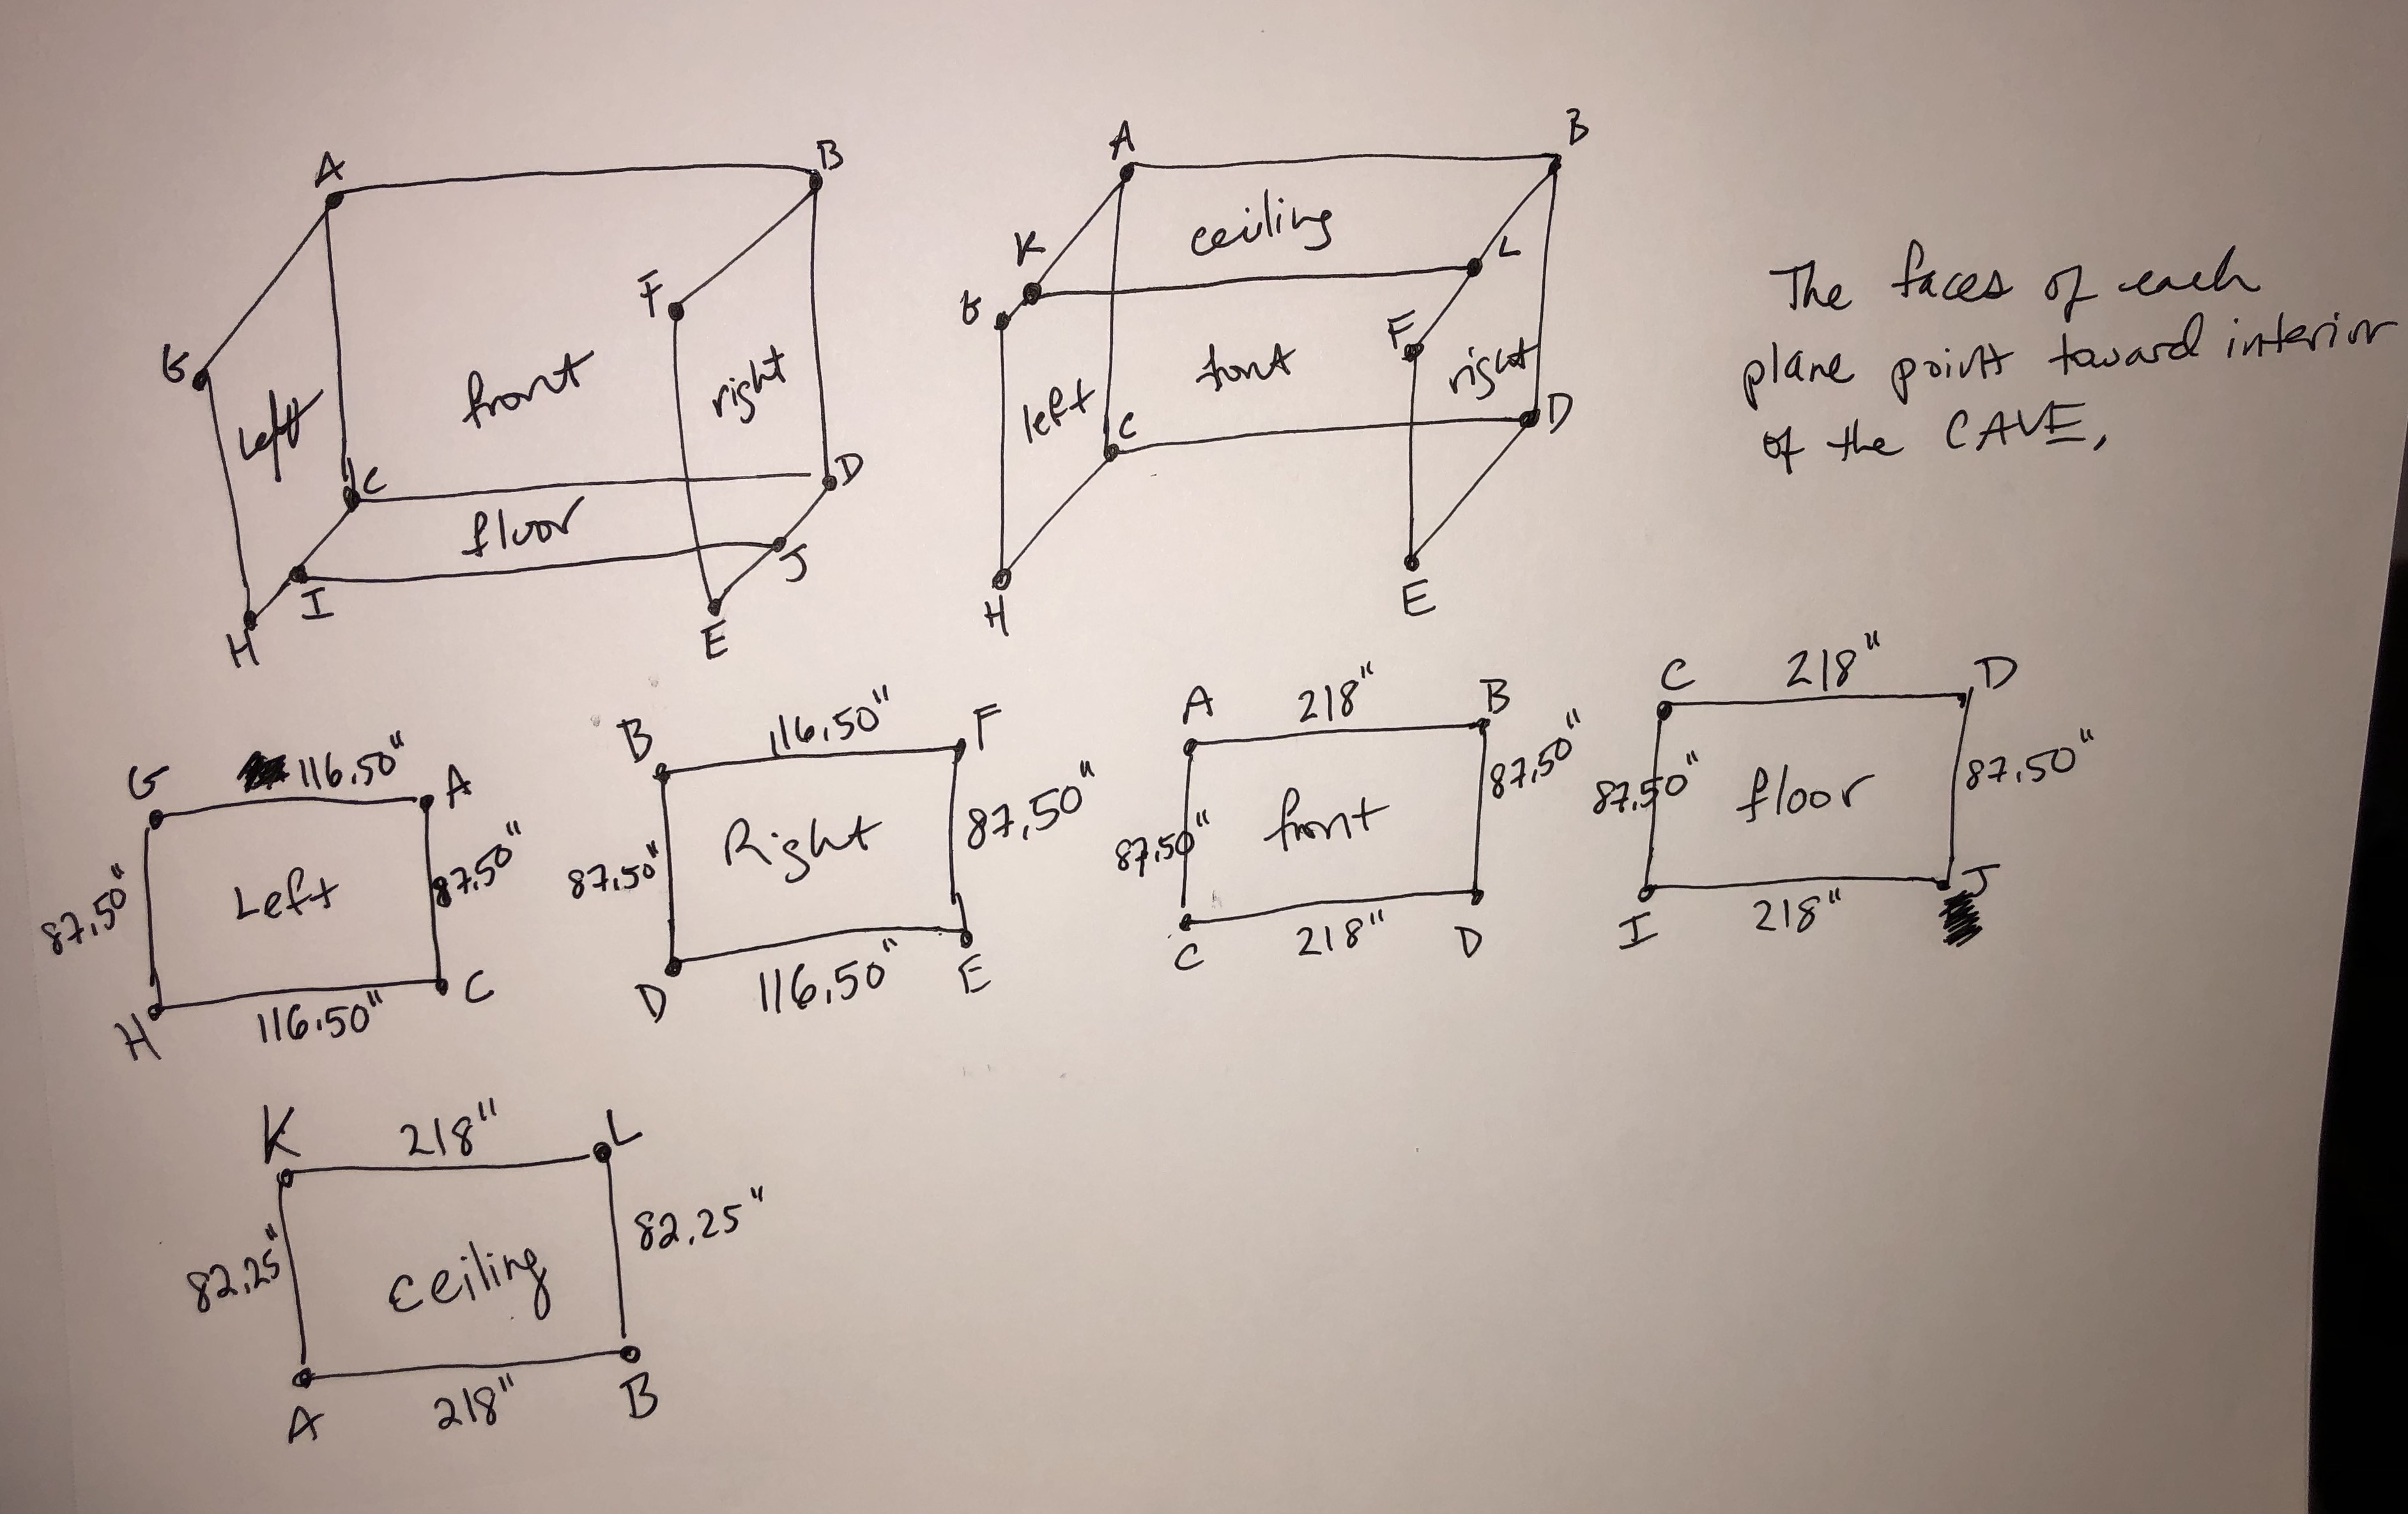 A
B
F
G
left
front
right
C
D
floor
I
J
H
E
A
B
ceiling
K
L
G
F
left
front
right
C
D
H
E
The faces of each
plane point toward interior
of the CAVE.
G
116.50"
A
87.50"
Left
87.50"
H
116.50"
C
B
116.50"
F
87.50"
Right
87.50"
D
116.50"
E
A
218"
B
87.50"
front
87.50"
C
218"
D
C
218"
D
87.50"
floor
87.50"
I
218"
J
K
218"
L
82.25"
ceiling
82.25"
A
218"
B